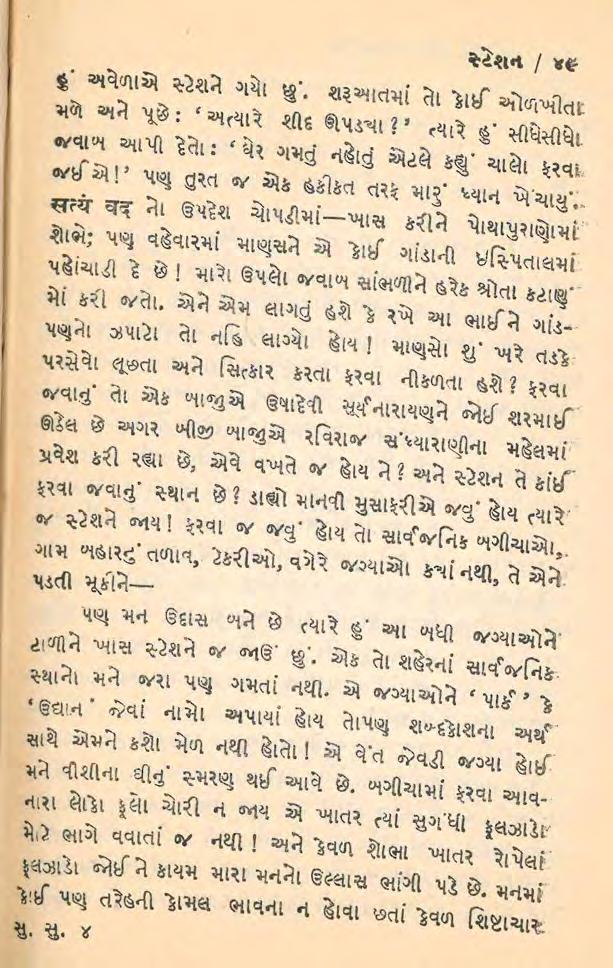 સ્ટેશન / ૪૯
હું અવેળાએ સ્ટેશને ગયો છું. શરૂઆતમાં તો કોઈ ઓળખીતા
મળે અને પૂછે : ‘ અત્યારે શીદ ઊપડ્યા ? ’ ત્યારે હું સીધેસીધો
જવાબ આપી દેતો : ‘ ઘેર ગમતું નહોતું એટલે કહ્યું ચાલો ફરવા
જઈએ ! ’ પણ તુરત જ એક હકીકત તરફ મારું ધ્યાન ખેંચાયું.
सत्यं वद નો ઉપદેશ ચોપડીમાં—ખાસ કરીને પોથાપુરાણોમાં
શોભે; પણ વહેવારમાં માણસને એ કોઈ ગાંડાની ઇસ્પિતાલમાં
પહોંચાડી દે છે ! મારો ઉપલો જવાબ સાંભળીને હરેક શ્રોતા કટાણું
મોં કરી જતો. એને એમ લાગતું હશે કે રખે આ ભાઈને ગાંડ-
પણનો ઝપાટો તો નહિ લાગ્યો હોય ! માણસો શું ખરે તડકે
પરસેવો લૂછતા અને સિત્કાર કરતા ફરવા નીકળતા હશે ? ફરવા
જવાનું તો એક બાજુએ ઉષાદેવી સૂર્યનારાયણને જોઈ શરમાઈ
ઊઠેલ છે અગર બીજી બાજુએ રવિરાજ સંધ્યારાણીના મહેલમાં
પ્રવેશ કરી રહ્યા છે, એવે વખતે જ હોય ને ? અને સ્ટેશન તે કાંઈ
ફરવા જવાનું સ્થાન છે ? ડાહ્યો માનવી મુસાફરીએ જવું હોય ત્યારે
જ સ્ટેશને જાય ! ફરવા જ જવું હોય તો સાર્વજનિક બગીચાઓ,
ગામ બહારનું તળાવ, ટેકરીઓ, વગેરે જગ્યાઓ ક્યાં નથી, તે એને
પડતી મૂકીને—
પણ મન ઉદાસ બને છે ત્યારે હું આ બધી જગ્યાઓને
ટાળીને ખાસ સ્ટેશને જ જાઉં છું. એક તો શહેરનાં સાર્વજનિક
સ્થાનો મને જરા પણ ગમતાં નથી. એ જગ્યાઓને ‘ પાર્ક ’ કે
‘ ઉદ્યાન ’ જેવાં નામો અપાયાં હોય તોપણ શબ્દકોશના અર્થ
સાથે એમને કશો મેળ નથી હોતો ! એ વેંત જેવડી જગ્યા જોઈ
મને વીશીના ઘીનું સ્મરણ થઈ આવે છે. બગીચામાં ફરવા આવ-
નારા લોકો ફૂલો ચોરી ન જાય એ ખાતર ત્યાં સુગંધી ફૂલઝાડો
મોટે ભાગે વવાતાં જ નથી ! અને કેવળ શોભા ખાતર રોપેલાં
ફૂલઝાડો જોઈને કાયમ મારા મનનો ઉલ્લાસ ભાંગી પડે છે. મનમાં
કોઈ પણ તરેહની કોમલ ભાવના ન હોવા છતાં કેવળ શિષ્ટાચાર
સુ. સુ. ૪